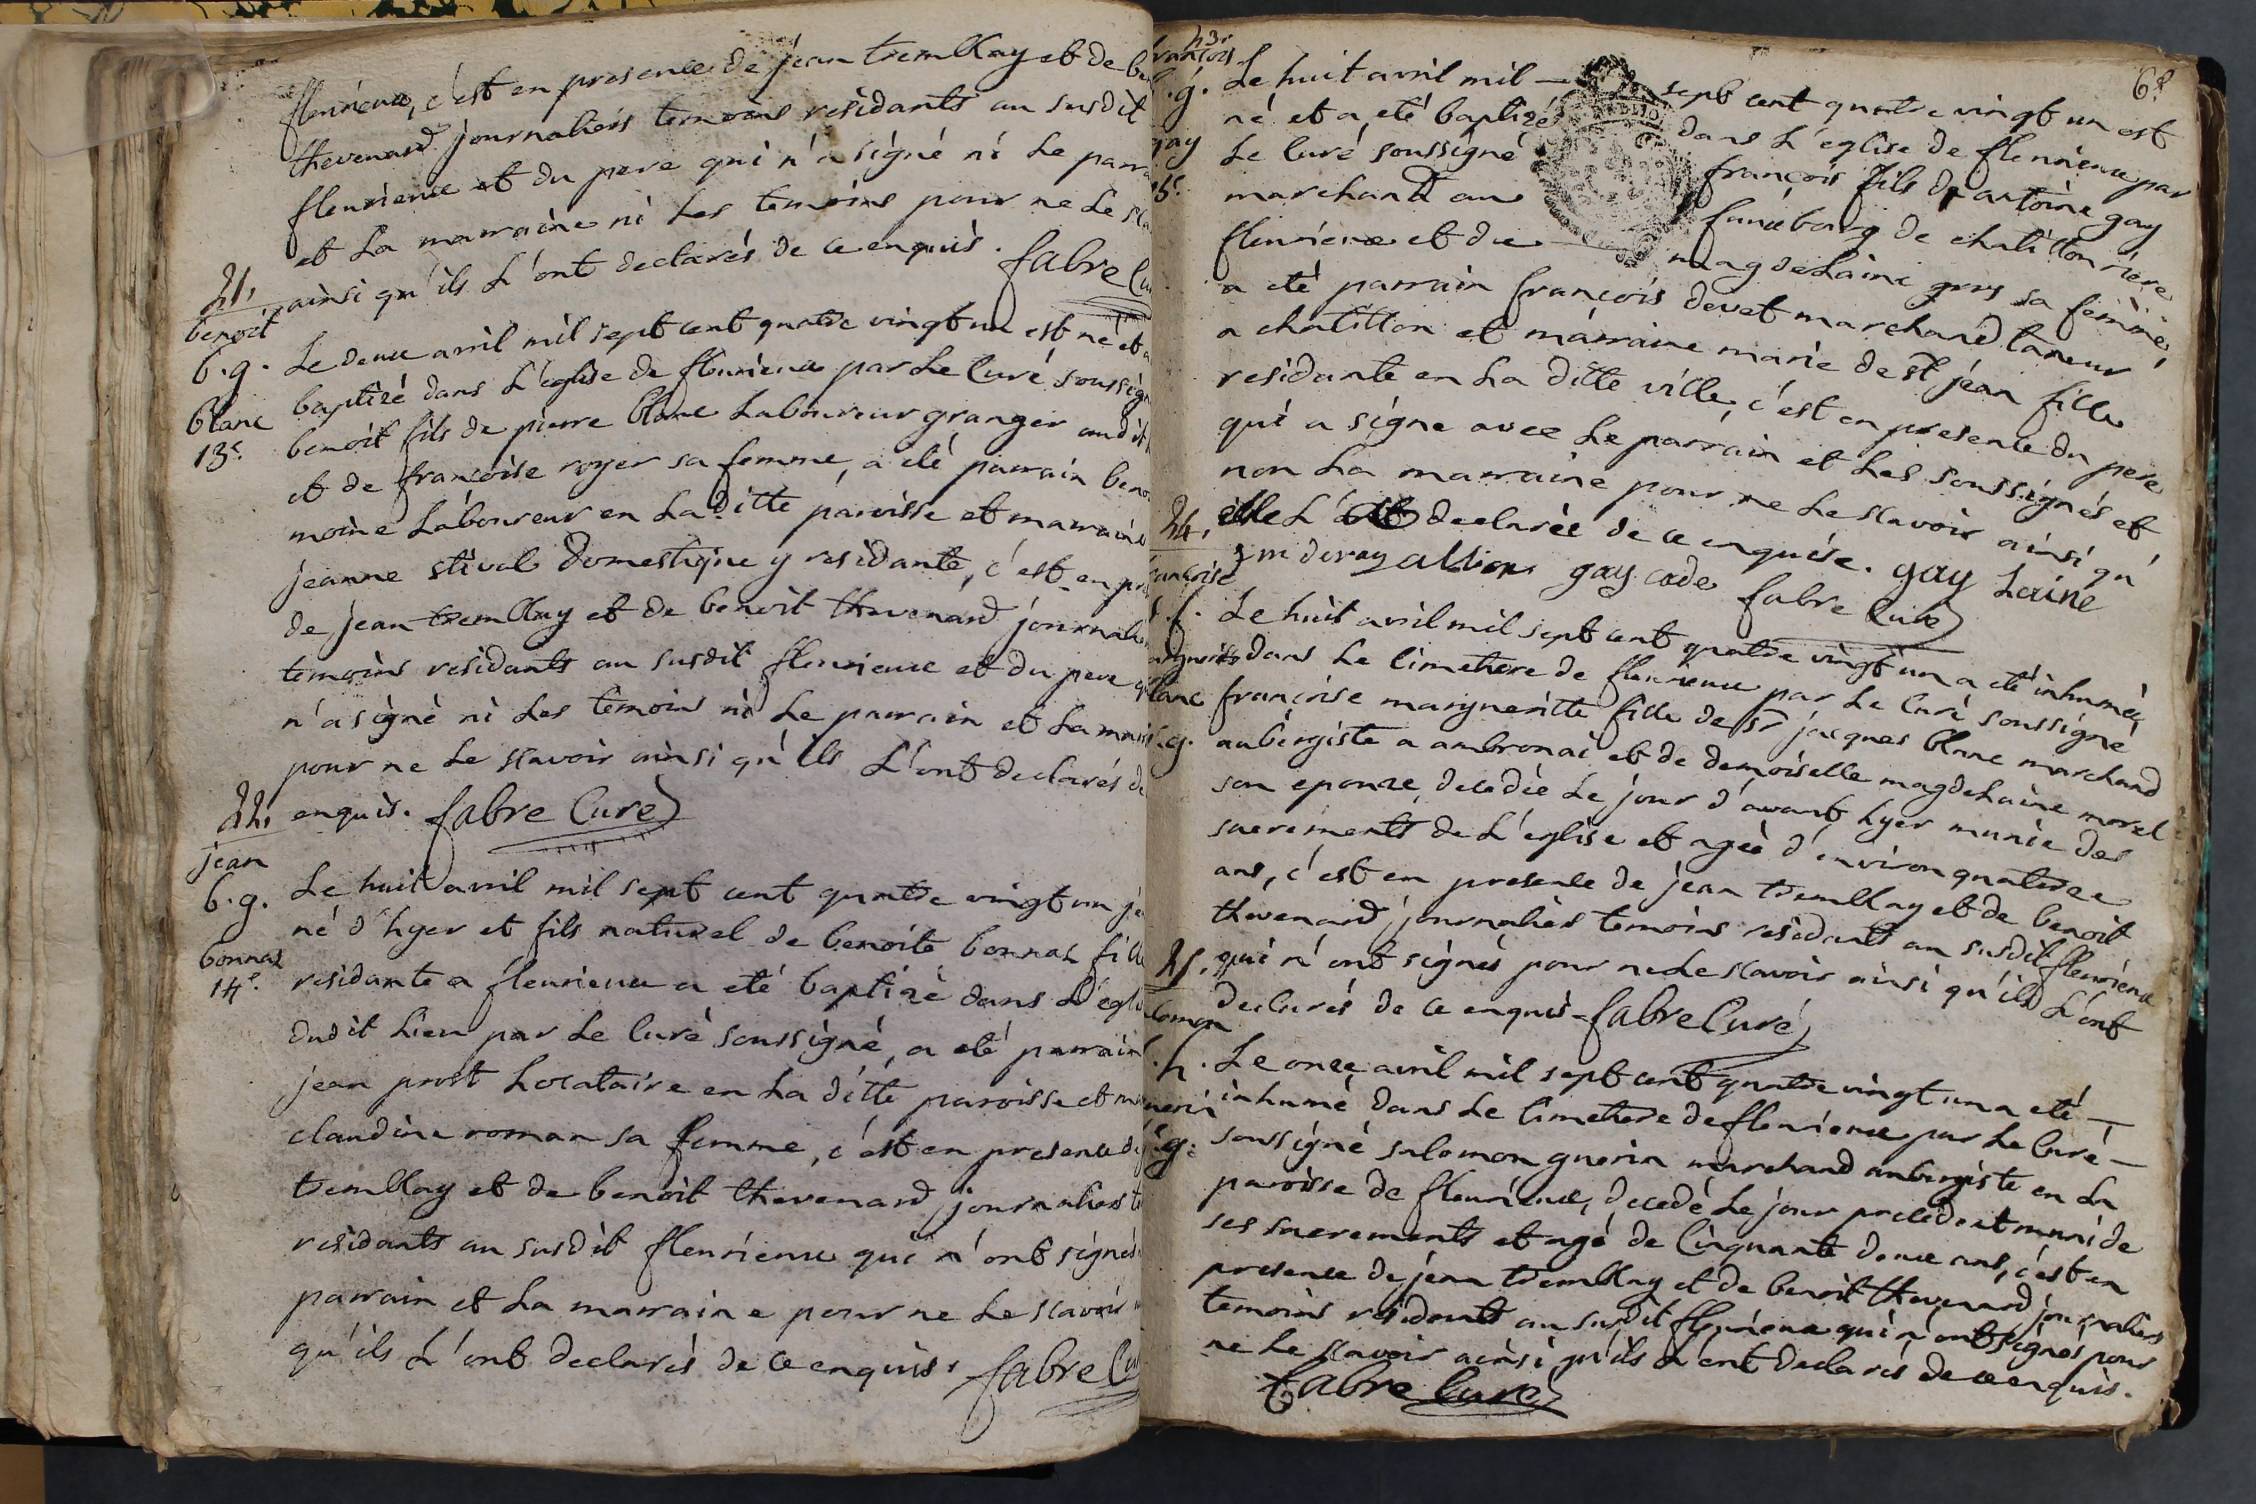 fleurieux, c'est en presence de jean tremblay et de be
thevenard journaliers temoins residants au susdit
fleurieux et du pere qui n'a signé ni le parra
et la marraine ni les temoins pour ne le sca
ainsi qu'ils l'ont declarés de ce enquis. fabre Cu
21.
benoit
b. g.
blanc
13e.
Le deux avril mil sept cent quatre vingt un est né et a
baptizé dans l'eglise de fleurieux par le Curé soussign
benoit fils de pierre blanc laboureur granger audit
et de françoise royer sa femme, a eté parrain beno
moine laboureur en la ditte paroisse et marraine
jeanne stival domestique y residante, c'est en pre
de jean tremblay et de benoit thevenard journali
temoins residants au susdit fleurieux et du pere q
n'a signé ni les temoins ni le parrain et la marr
pour ne le scavoir ainsi qu'ils l'ont declarés de
enquis. fabre Curé
22.
jean
b. g.
bonnat
14e.
Le huit avril mil sept cent quatre vingt un je
né d'hyer et fils naturel de benoite bonnat fille
residante a fleurieux a eté baptizé dans l'egli
dudit lieu par le Curé soussigné, a eté parrain
jean prost locataire en la ditte paroisse et ma
claudine roman sa femme, c'est en presence de
tremblay et de benoit thevenard journaliers te
residants au susdit fleurieux qui n'ont signés
parrain et la marraine pour ne le scavoir
qu'ils l'ont declarés de ce enquis. fabre Cu
6e
23.
françois
b. g.
gay
15e.
Le huit avril mil — sept cent quatre vingt un est
né et a eté baptizé dans l'eglise de fleurieux par
le Curé soussigné françois fils de antoine gay
marchand au fauxbourg de chatillon riere
fleurieux et de — magdelaine gros sa femme,
a eté parrain françois devet marchand taneur
a chatillon et marraine marie de st jean fille
residante en la ditte ville, c'est en presence du pere
qui a signe avec le parrain et les soussignés et
non la marraine pour ne le scavoir ainsi qu'
elle l'a declarée de ce enquise. gay Lainé
gay cade fabre Curé
24.
françoise
s. f.
blanc
g.
Le huit avril mil sept cent quatre vingt un a eté inhumée
dans le Cimetiere de fleurieux par le Curé soussigné
françoise margueritte fille de sr jacques blanc marchand
aubergiste a ambronai et de demoiselle magdelaine morel
son epouze, decedée le jour d'avant hyer munie des
sacrements de l'eglise et agée d'environ quatorze
ans, c'est en presence de jean tremblay et de benoit
thevenard journaliers temoins residants au susdit fleurieux
qui n'ont signés pour ne le scavoir ainsi qu'ils l'ont
declarés de ce enquis. fabre Curé
25.
lomon
h.
uerin
g.
Le onze avril mil sept cent quatre vingt un a eté —
inhumé dans le Cimetiere de fleurieux par le Curé —
soussigné salomon guerin marchand aubergiste en la
paroisse de fleurieux, decedé le jour precedent muni de
ses sacrements et agé de Cinquante deux ans, c'est en
presence de jean tremblay et de benoit thevenard journaliers
temoins residants au susdit fleurieux qui n'ont signés pour
ne le scavoir ainsi qu'ils l'ont declarés de ce enquis.
fabre Curé